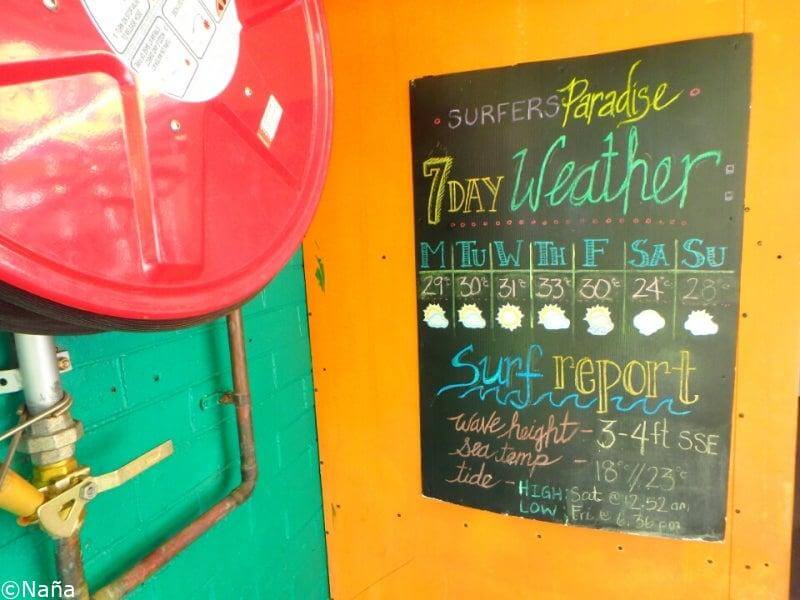 SURFERS Paradise
7 DAY Weather
M TU W TH F SA SU
29° 30° 31° 33° 30° 24° 28°
Surf report
wave height - 3-4ft SSE
sea temp - 18°c//23°c
tide - HIGH: Sat @ 12.52 am
LOW: Fri @ 6.36 pm
©Naña